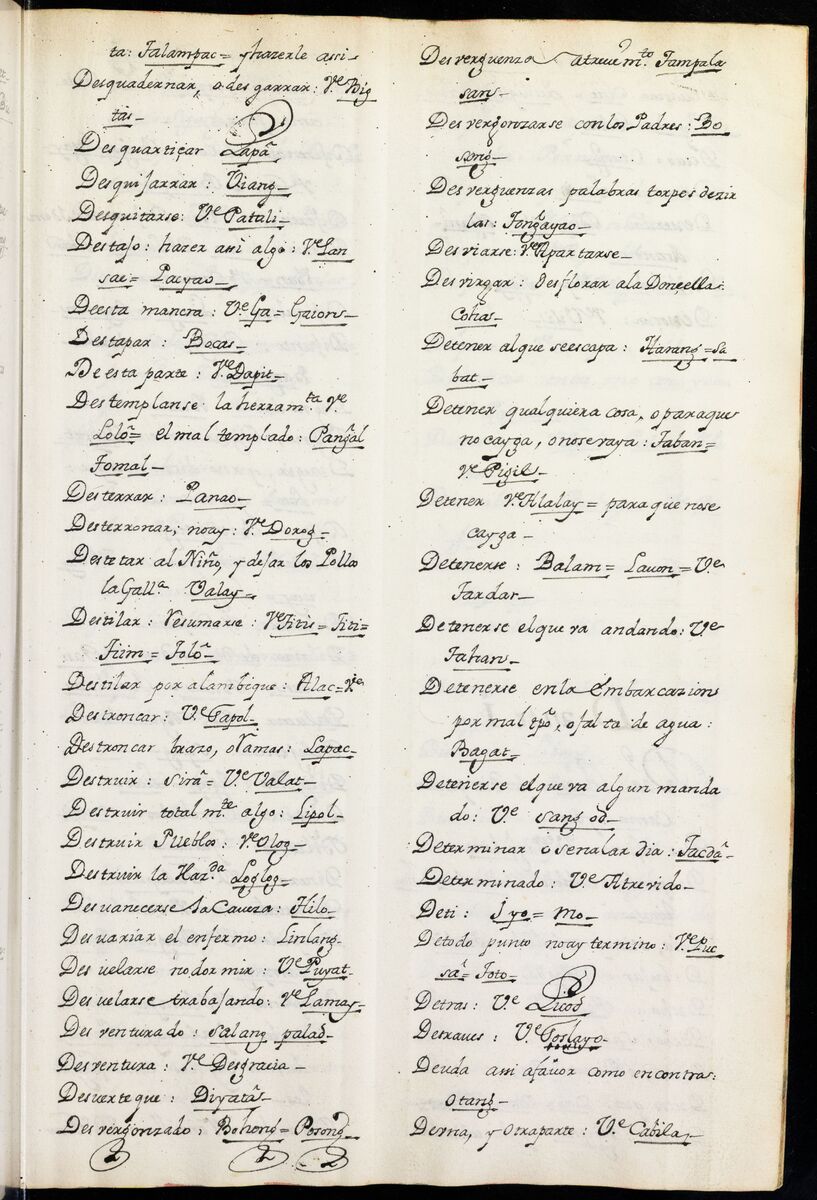 ta: Talampac= y hazerle assi_
Desquadernar, o des garrar: Ve Big
tas_
Des quartiçar Lapã,
Des quijarrar: Viang_
Desquitarse: Ve Patali_
Destajo: hazer assi algo: Ve San
sae= Pacyao_
Deesta manera: Ve Ga= Gaions_
Des tapar: Bocas_
De esta parte: Ve Dapit_
Des templanse la herramta. Ve
Lolõ= el mal templado: Pangal
Tomal_
Des terrar: Panao_
Des terronar; noay: Ve Dorog_
Deste tar al Niño, y dejar los Pollos
la Galla. Valay_
Destilar: Resumarse: Ve Titis= Titi=
Tiim= Tolõ_
Des tilar por alambique: Alac= Ve
Des troncar: Ve Tapol_
Destroncar brazo, o Ramas: Lapac_
Des truir: sirã_ Ve Valat_
Des truir total mte. algo: Lipol_
Des truir Pueblos: Ve Olog_
Des truir la Hazda. Loglog_
Des uanecerse la Caueza: Hilo_
Des uariar el enfermo: Linlang_
Des uelarse no dormir: Ve Puyat_
Des uelarse trabajando: Ve Lamay_
Des venturado: salang palad_
Des ventura: Ve Desgracia_
Des uerte que: Diyatãs_
Des vergonzado: Bohong= Posong_
2 2 2
Des verguenza atreuemto. Tampala
san_
Des vergonzarse con los Padres: Bo
song_
Des verguenzas palabras torpes dezir
las: Tongayao_
Des viarse: Ve Apartarse_
Des virgar: desflorar ala Donçella:
Cohas_
Detener al que se escapa: Harang= Sa
bat_
Detener qualquiera cosa, o para que
no cayga, o nose vaya: Taban=
Ve Pigil_
Detener Ve Alalay= para que nose
cayga_
Detenerse: Balam= Lauon= Ve
Tardar_
Detenerse el que va andando: Ve
Tahan_
Detenerse en la Embarcazion
por mal tpõ, o falta de agua:
Bagat_
Detenerse el que va algun manda
do: Ve sangod_
Determinar o senalar dia: Tacdã_
Determinado: Ve Atrevido_
Deti: Iyo= mo_
Detodo punto noay termino: Ve Puc
sã_ Toto_
Detras: Ve Licod
Detraues: Ve Toslayo_
Deuda assi afauor como en contra:
Otang_
Derna, y otra parte: Ve Cabila_